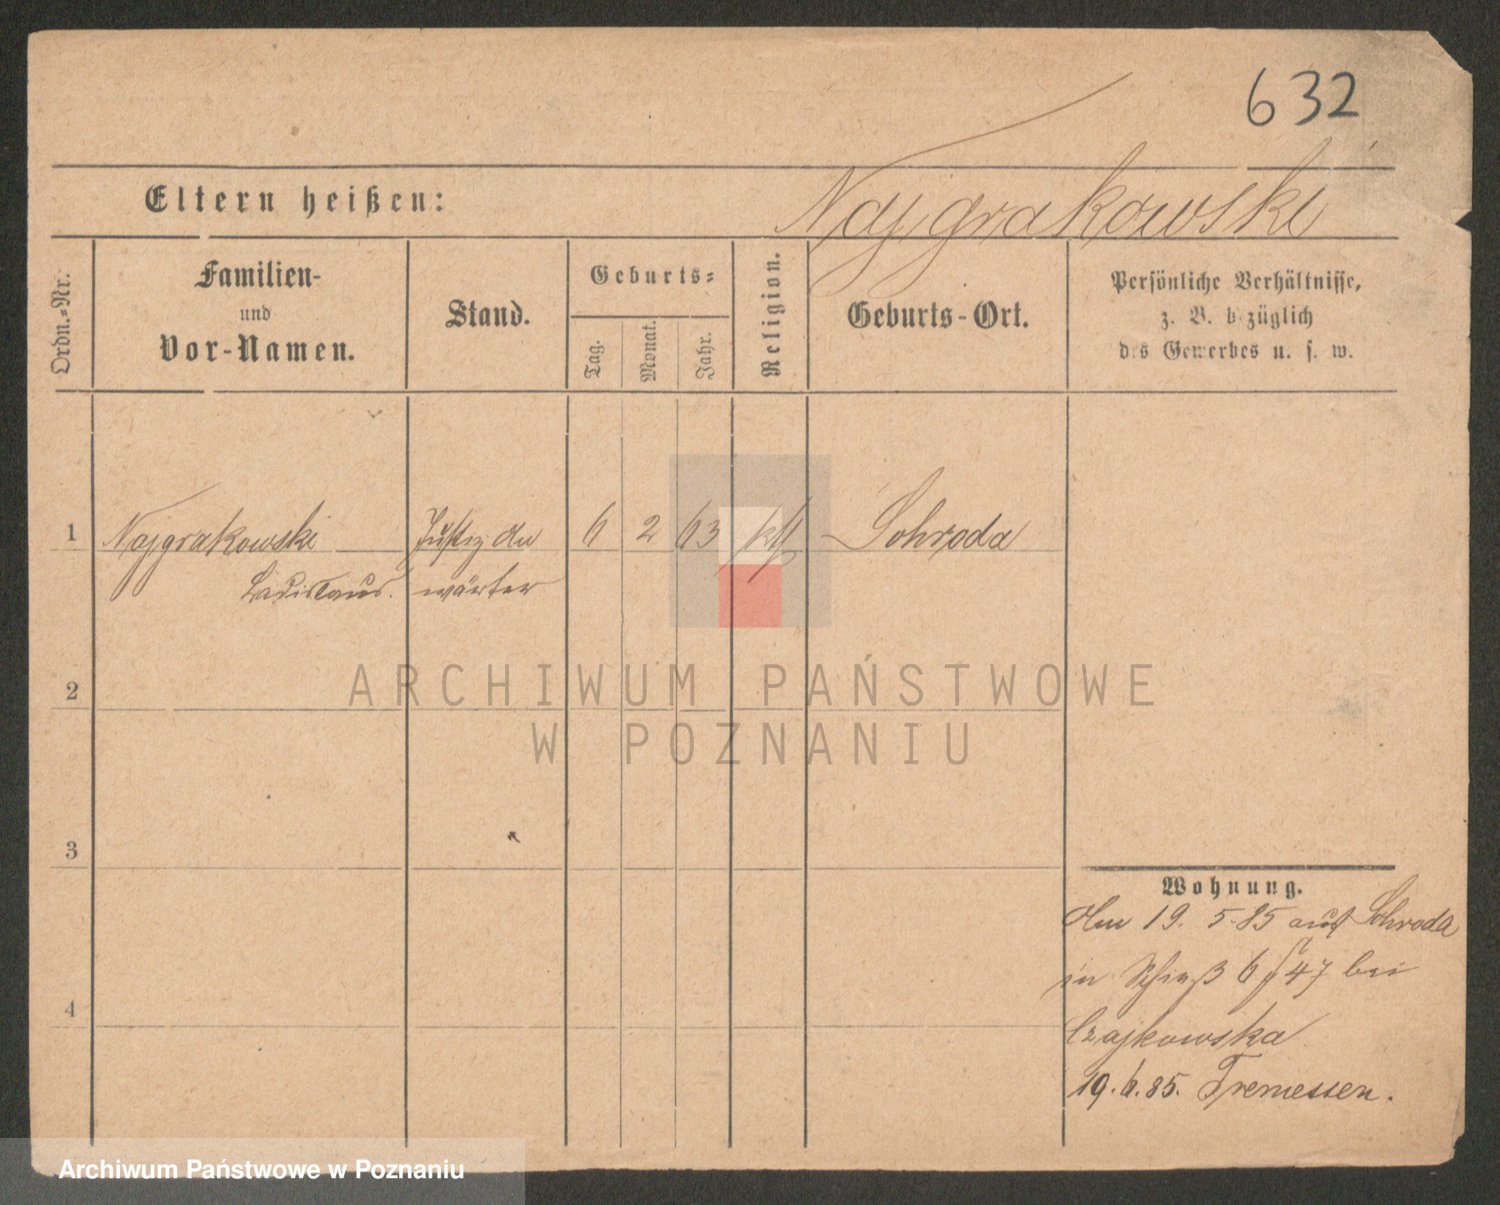 632
Eltern heißen:
Najgrakowski
Ordn.-Nr.
Familien-
und
Vor-Namen.
Stand.
Geburts-
Tag.
Monat.
Jahr.
Religion.
Geburts-Ort.
Persönliche Verhältnisse,
z. B. bezüglich
des Gewerbes u. s. w.
1 Najgrakowski Justiz An 6 2 63 kth Schroda
Ladislaus. wärter
2
3
4
ARCHIWUM PAŃSTWOWE
W POZNANIU
Wohnung.
Am 19. 5. 85 aus Schroda
in 6 47 bei
Czajkowska
19. 6. 85. Tremessen.
Archiwum Państwowe w Poznaniu